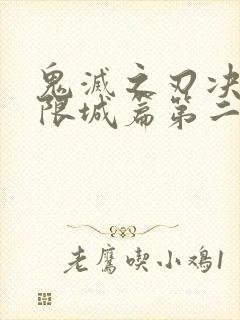 鬼滅之刃决
限城篇第二
老鷹喫小鸡1